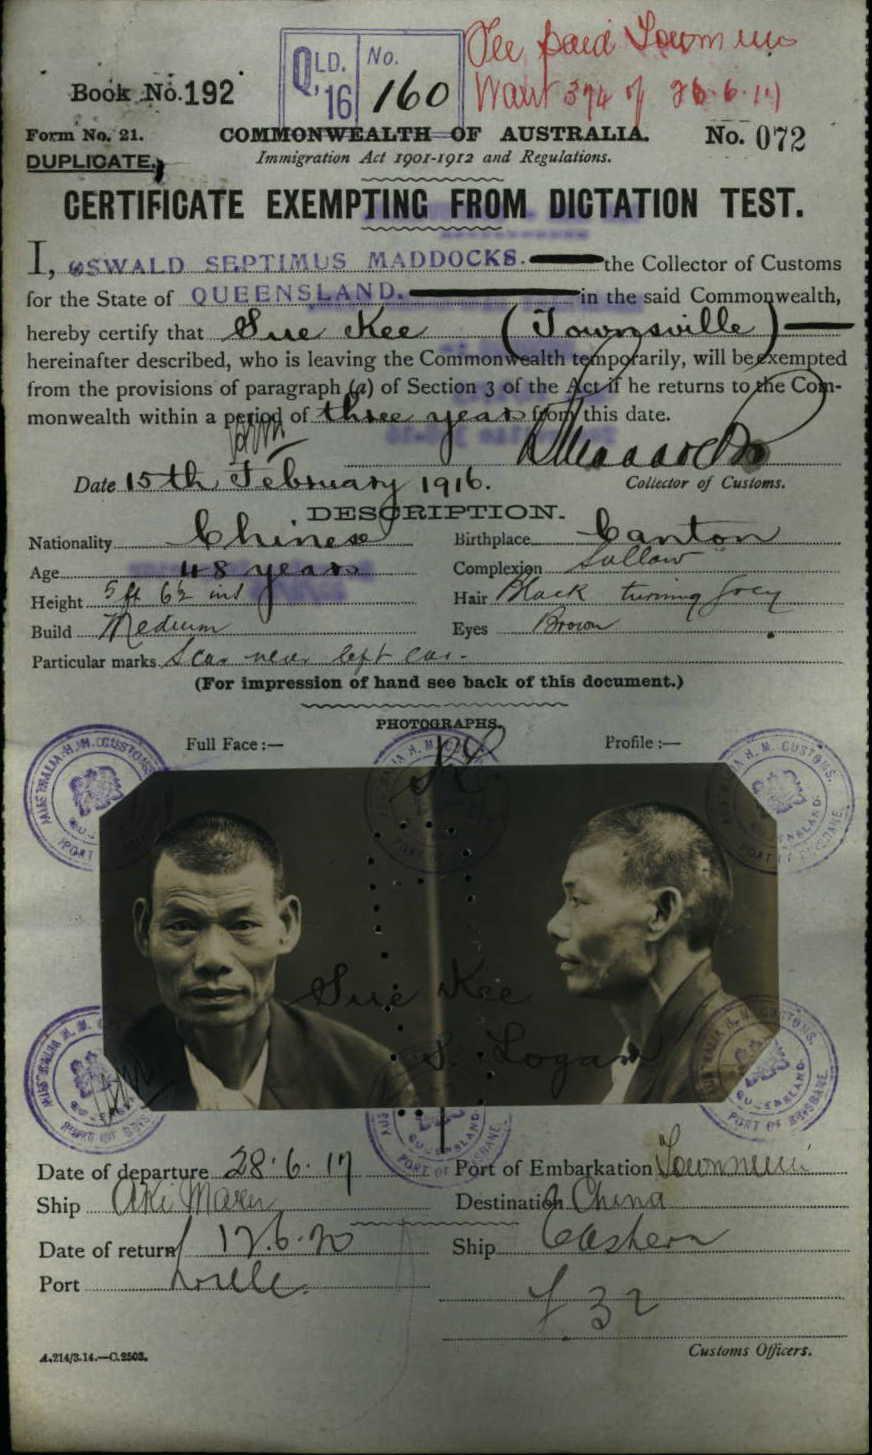 Fee paid Townsville
QLD. No.
'16 160
Want 374 of 26.6.17
Book No. 192
Form No. 21.
COMMONWEALTH OF AUSTRALIA.
No. 072
DUPLICATE.
Immigration Act 1901-1912 and Regulations.
CERTIFICATE EXEMPTING FROM DICTATION TEST.
I, OSWALD SEPTIMUS MADDOCKS. the Collector of Customs
for the State of QUEENSLAND. in the said Commonwealth,
hereby certify that Sue Kee (Townsville)
hereinafter described, who is leaving the Commonwealth temporarily, will be exempted
from the provisions of paragraph (a) of Section 3 of the Act if he returns to the Com-
monwealth within a period of three years from this date.
Date 15th February 1916.
Collector of Customs.
DESCRIPTION.
Nationality Chinese Birthplace Canton
Age 48 years Complexion Sallow
Height 5 ft 6½ ins Hair Black turning grey
Build Medium Eyes Brown
Particular marks Scar near left ear.
(For impression of hand see back of this document.)
PHOTOGRAPHS.
Full Face:— Profile:—
Sue Kee
S. Logan
Date of departure 28.6.17 Port of Embarkation Townsville
Ship Aki Maru Destination China
Date of return 17.6.20 Ship Eastern
Port
f 32
A.214/3.14.—C.2503.
Customs Officers.